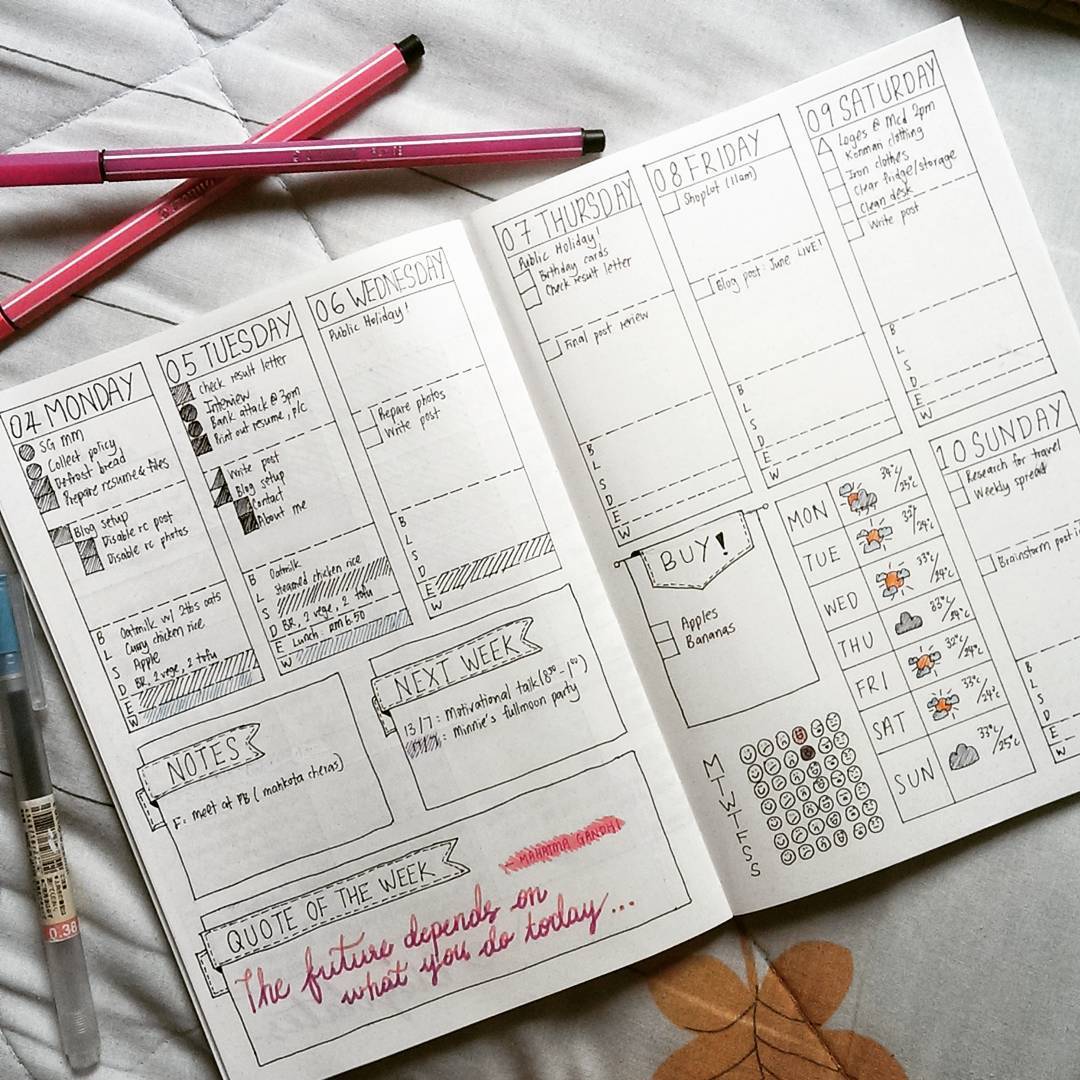 04 MONDAY
SG MM
Collect policy
Defrost bread
Prepare resume & files
Blog setup
Disable rc post
Disable rc photos
B Oatmilk w/ 2tbs oats
L Curry chicken rice
S Apple
D BR, 2 vege, 2 tofu
E
W
05 TUESDAY
Check result letter
Interview
Bank attack @ 3pm
Print out resume, plc
Write post
Blog setup
Contact
About me
B Oatmilk
L Steamed chicken rice
S
D BR, 2 vege, 2 tofu
E Lunch: RM6.50
W
06 WEDNESDAY
Public Holiday!
Prepare photos
Write post
B
L
S
D
E
W
NOTES
F: meet at PB (mahkota cheras)
NEXT WEEK
13/7: Motivational talk (8
: Minnie's fullmoon party
QUOTE OF THE WEEK
MAHATMA GANDHI
The future depends on
what you do today...
07 THURSDAY
Public Holiday!
Birthday cards
Check result letter
Final post review
B
L
S
D
E
W
08 FRIDAY
Shoplot (11am)
Blog post: June LIVE!
B
L
S
D
E
W
09 SATURDAY
Loges @ McD 2pm
Konman clothing
Iron clothes
Clear fridge/storage
Clean desk
Write post
B
L
S
D
E
W
10 SUNDAY
Research for travel
Weekly spread
Brainstorm post i
B
L
S
D
E
W
BUY!
Apples
Bananas
MON 34°c/25°c
TUE /24°c
WED 33°c/24°c
THU 33°c/24°c
FRI 32°c/24°c
SAT 33°c/24°c
SUN 33°c/25°c
M
T
W
T
F
S
S
0.38